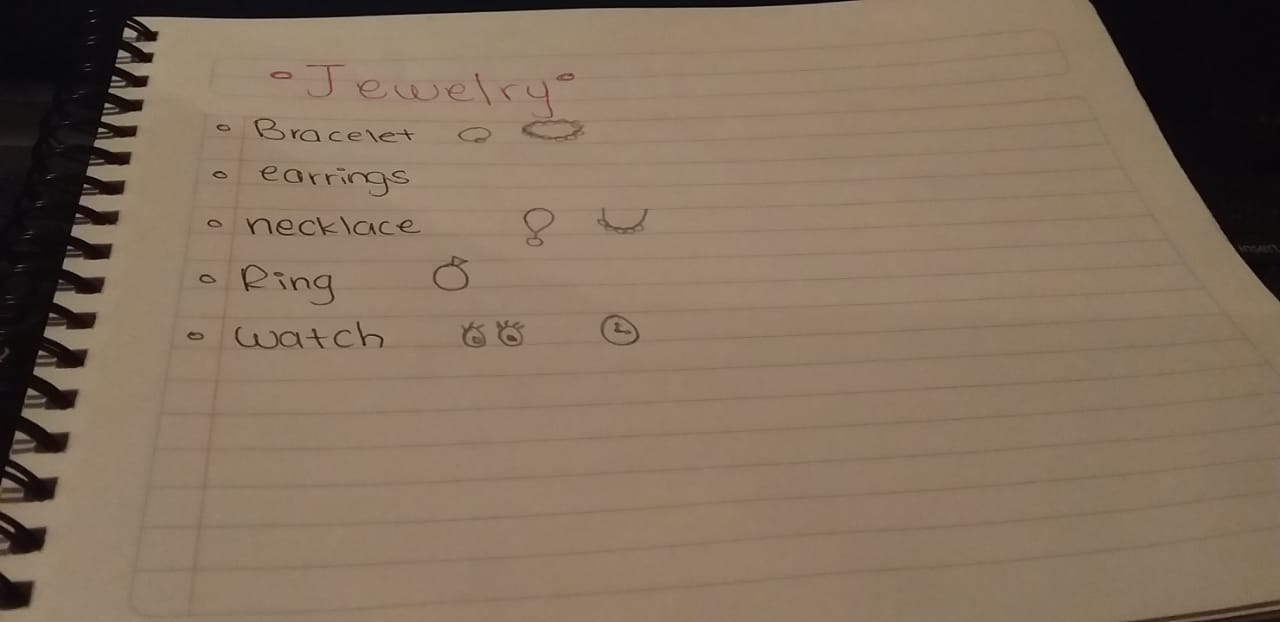 °Jewelry°
° Bracelet
° earrings
° necklace
° Ring
° watch
insert